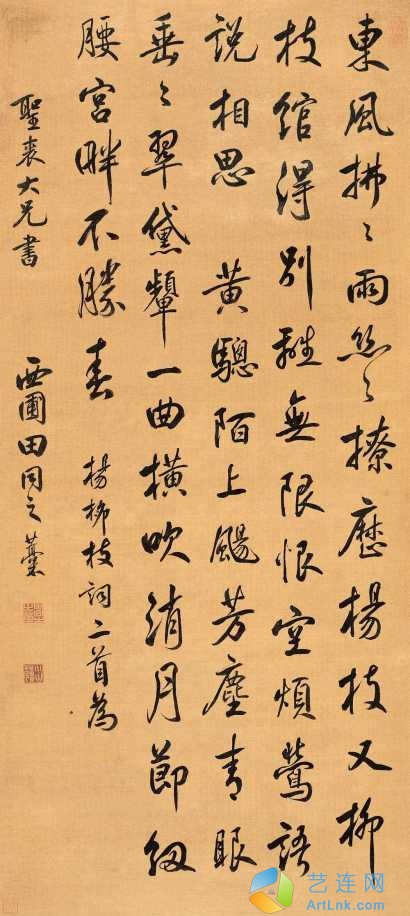 東風拂〻雨絲〻撩歷楊枝又柳
枝綰得別離無限恨空煩鶯語
說相思 黃驄陌上颺芳塵青眼
垂〻翠黛顰一曲橫吹消月節細
腰宮畔不勝春 楊柳枝詞二首為
聖大兄書 西圃田同之藁
艺连网
ArtLnk.com